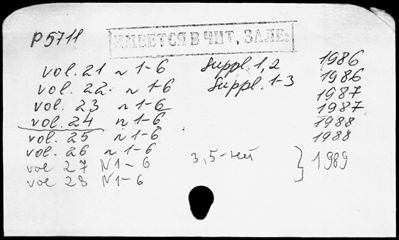 P5711
ИМЕЕТСЯ В ЧИТ. ЗАЛЕ.
vol. 21 n 1-6 Suppl. 1,2 1986
vol. 22 n 1-6 Suppl. 1-3 1986
vol. 23 n 1-6 1987
vol. 24 n 1-6 1987
vol. 25 n 1-6 1988
vol. 26 n 1-6 1988
vol 27 N1-6 3,5-нет } 1989
vol 28 N1-6